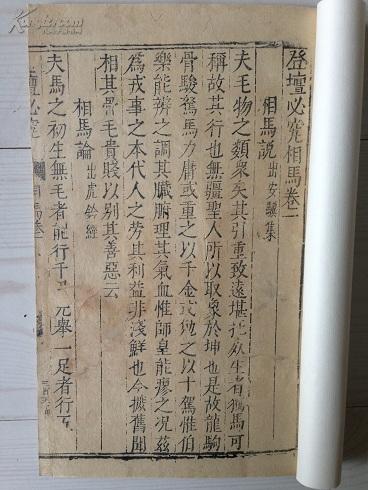 登壇必究相馬卷一
相馬說出安驥集
夫毛物之類衆矣其引重致遠堪任効生者獨馬可
稱故其行也無疆聖人所以取象於坤也是故龍駒
骨駿駑馬力庸或重之以千金或勉之以十駕惟伯
樂能辨之調其臟腑理其氣血惟師皇能療之况茲
為戎事之本代人之勞其利益非淺鮮也今據舊聞
相其骨毛貴賤以別其善惡云
相馬論出虎鈐經
夫馬之初生無毛者能行千里元舉一足者行五
壇必究
相馬卷一